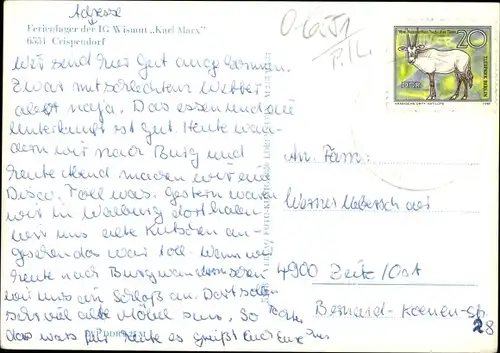 Adresse
Ferienlager der IG Wismut „Karl Marx"
6551 Crispendorf
O-6551
P.L.
Wir send hier gut angekommen.
Zwar mit schlechten Wetter
aber naja. Das essen und die
Unterkunft ist gut. Heute wan-
dern wir nach Burg und
heute Abend machen wir eine
Disco. Toll was. Gestern waren
wir in Walburg dort haben
wir uns alte Kutschen an-
gesehen das war toll. Wenn wir
heute nach Burg wandern sehen
wir uns ein Schloß an. Dort sollen
sehr viele alte Möbel sein. So
das wars für heute es grüßt Euch Eure
20
DDR
TIERPARK BERLIN
An: Fam:
Werner
4900 Zeitz/Ost
Bernard-Koenen-St.
28